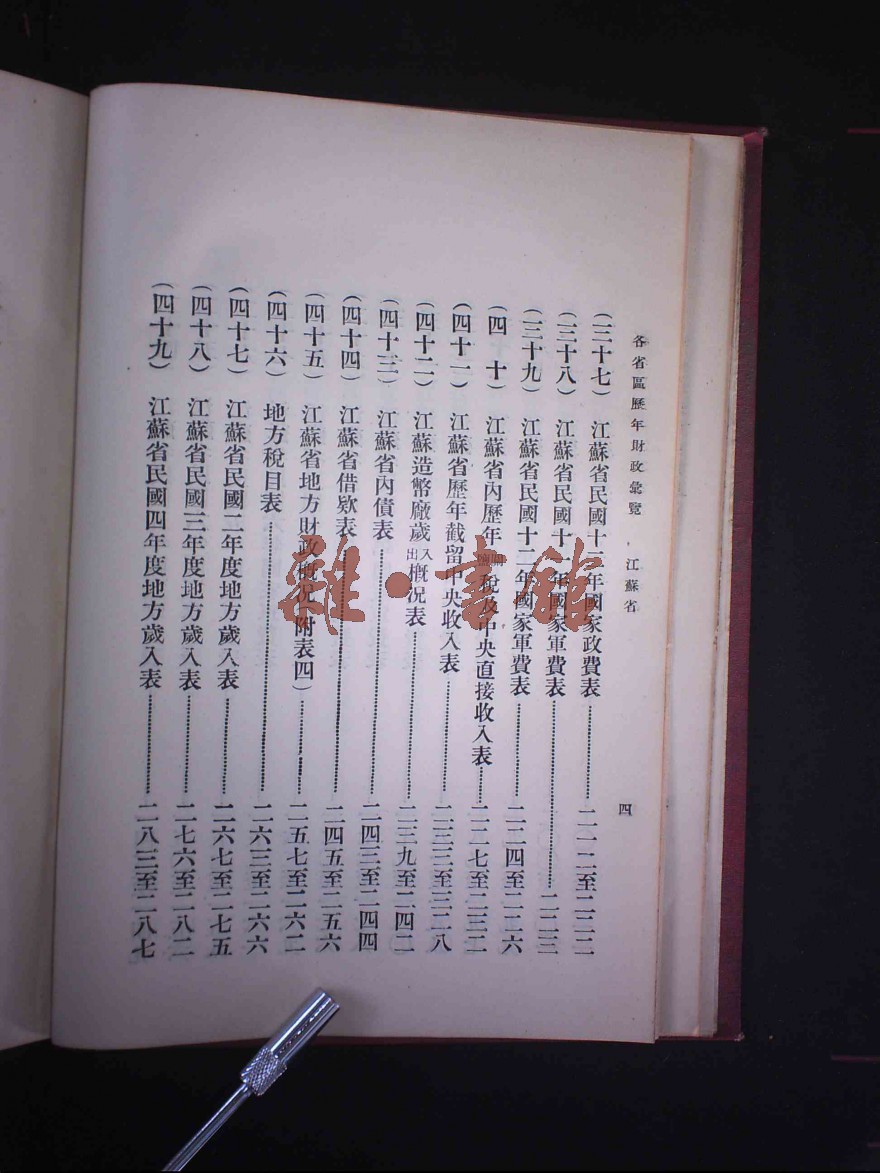 各省區歷年財政彙覽 江蘇省 四
(三十七) 江蘇省民國十二年國家政費表……二一二至二二二
(三十八) 江蘇省民國十一年國家軍費表……二二三
(三十九) 江蘇省民國十二年國家軍費表……二二四至二二六
(四十) 江蘇省內歷年關鹽稅及中央直接收入表……二二七至二三二
(四十一) 江蘇省歷年截留中央收入表……二三三至三二八
(四十二) 江蘇造幣廠歲入出概況表……二三九至二四二
(四十三) 江蘇省內債表……二四三至二四四
(四十四) 江蘇省借欵表……二四五至二五六
(四十五) 江蘇省地方財政概況(附表四)……二五七至二六二
(四十六) 地方稅目表……二六三至二六六
(四十七) 江蘇省民國二年度地方歲入表……二六七至二七五
(四十八) 江蘇省民國三年度地方歲入表……二七六至二八二
(四十九) 江蘇省民國四年度地方歲入表……二八三至二八七
雜·書館